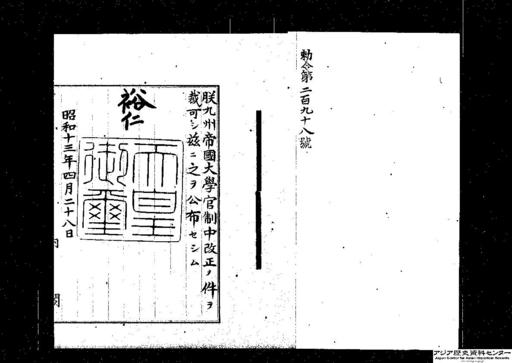 勅令第二百九十八號
朕九州帝國大學官制中改正ノ件ヲ
裁可シ茲ニ之ヲ公布セシム
裕仁
天皇
御璽
昭和十三年四月二十八日
アジア歴史資料センター
Japan Center for Asian Historical Records